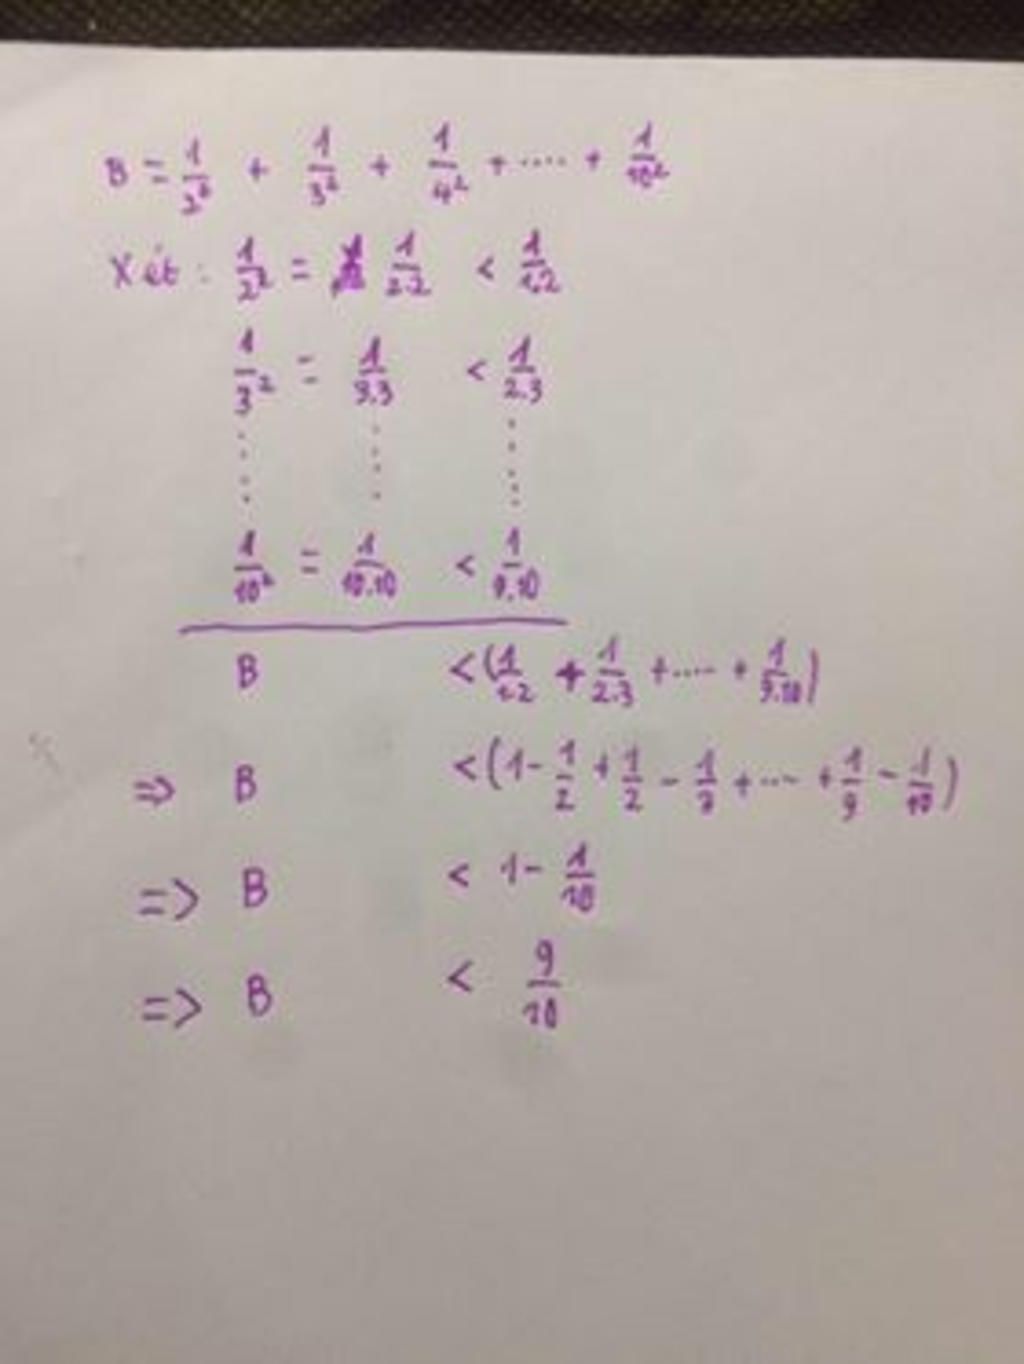 B = 1/2² + 1/3² + 1/4² + ..... + 1/10²
Xét: 1/2² = 1/2.2 < 1/1.2
1/3² = 1/3.3 < 1/2.3
1/10² = 1/10.10 < 1/9.10
B < (1/1.2 + 1/2.3 + .... + 1/9.10)
=> B < (1 - 1/2 + 1/2 - 1/3 + .... + 1/9 - 1/10)
=> B < 1 - 1/10
=> B < 9/10